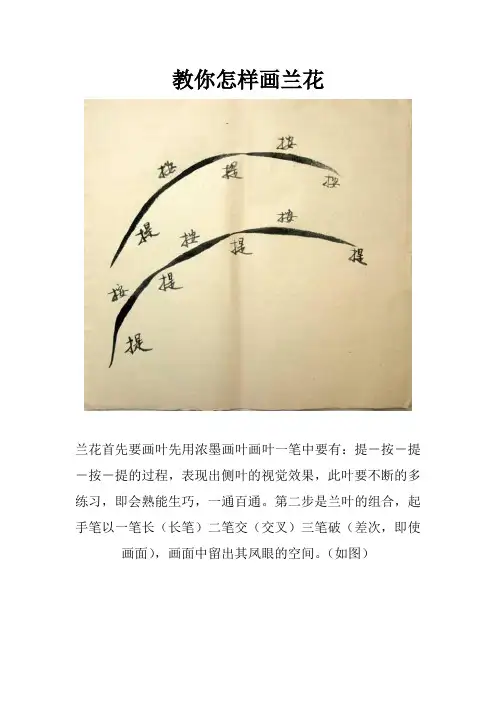 教你怎样画兰花
按
按
提
按
提
按
按
提
提
按
提
提
兰花首先要画叶先用浓墨画叶画叶一笔中要有：提－按－提
－按－提的过程，表现出侧叶的视觉效果，此叶要不断的多
练习，即会熟能生巧，一通百通。第二步是兰叶的组合，起
手笔以一笔长（长笔）二笔交（交叉）三笔破（差次，即使
画面），画面中留出其凤眼的空间。（如图）